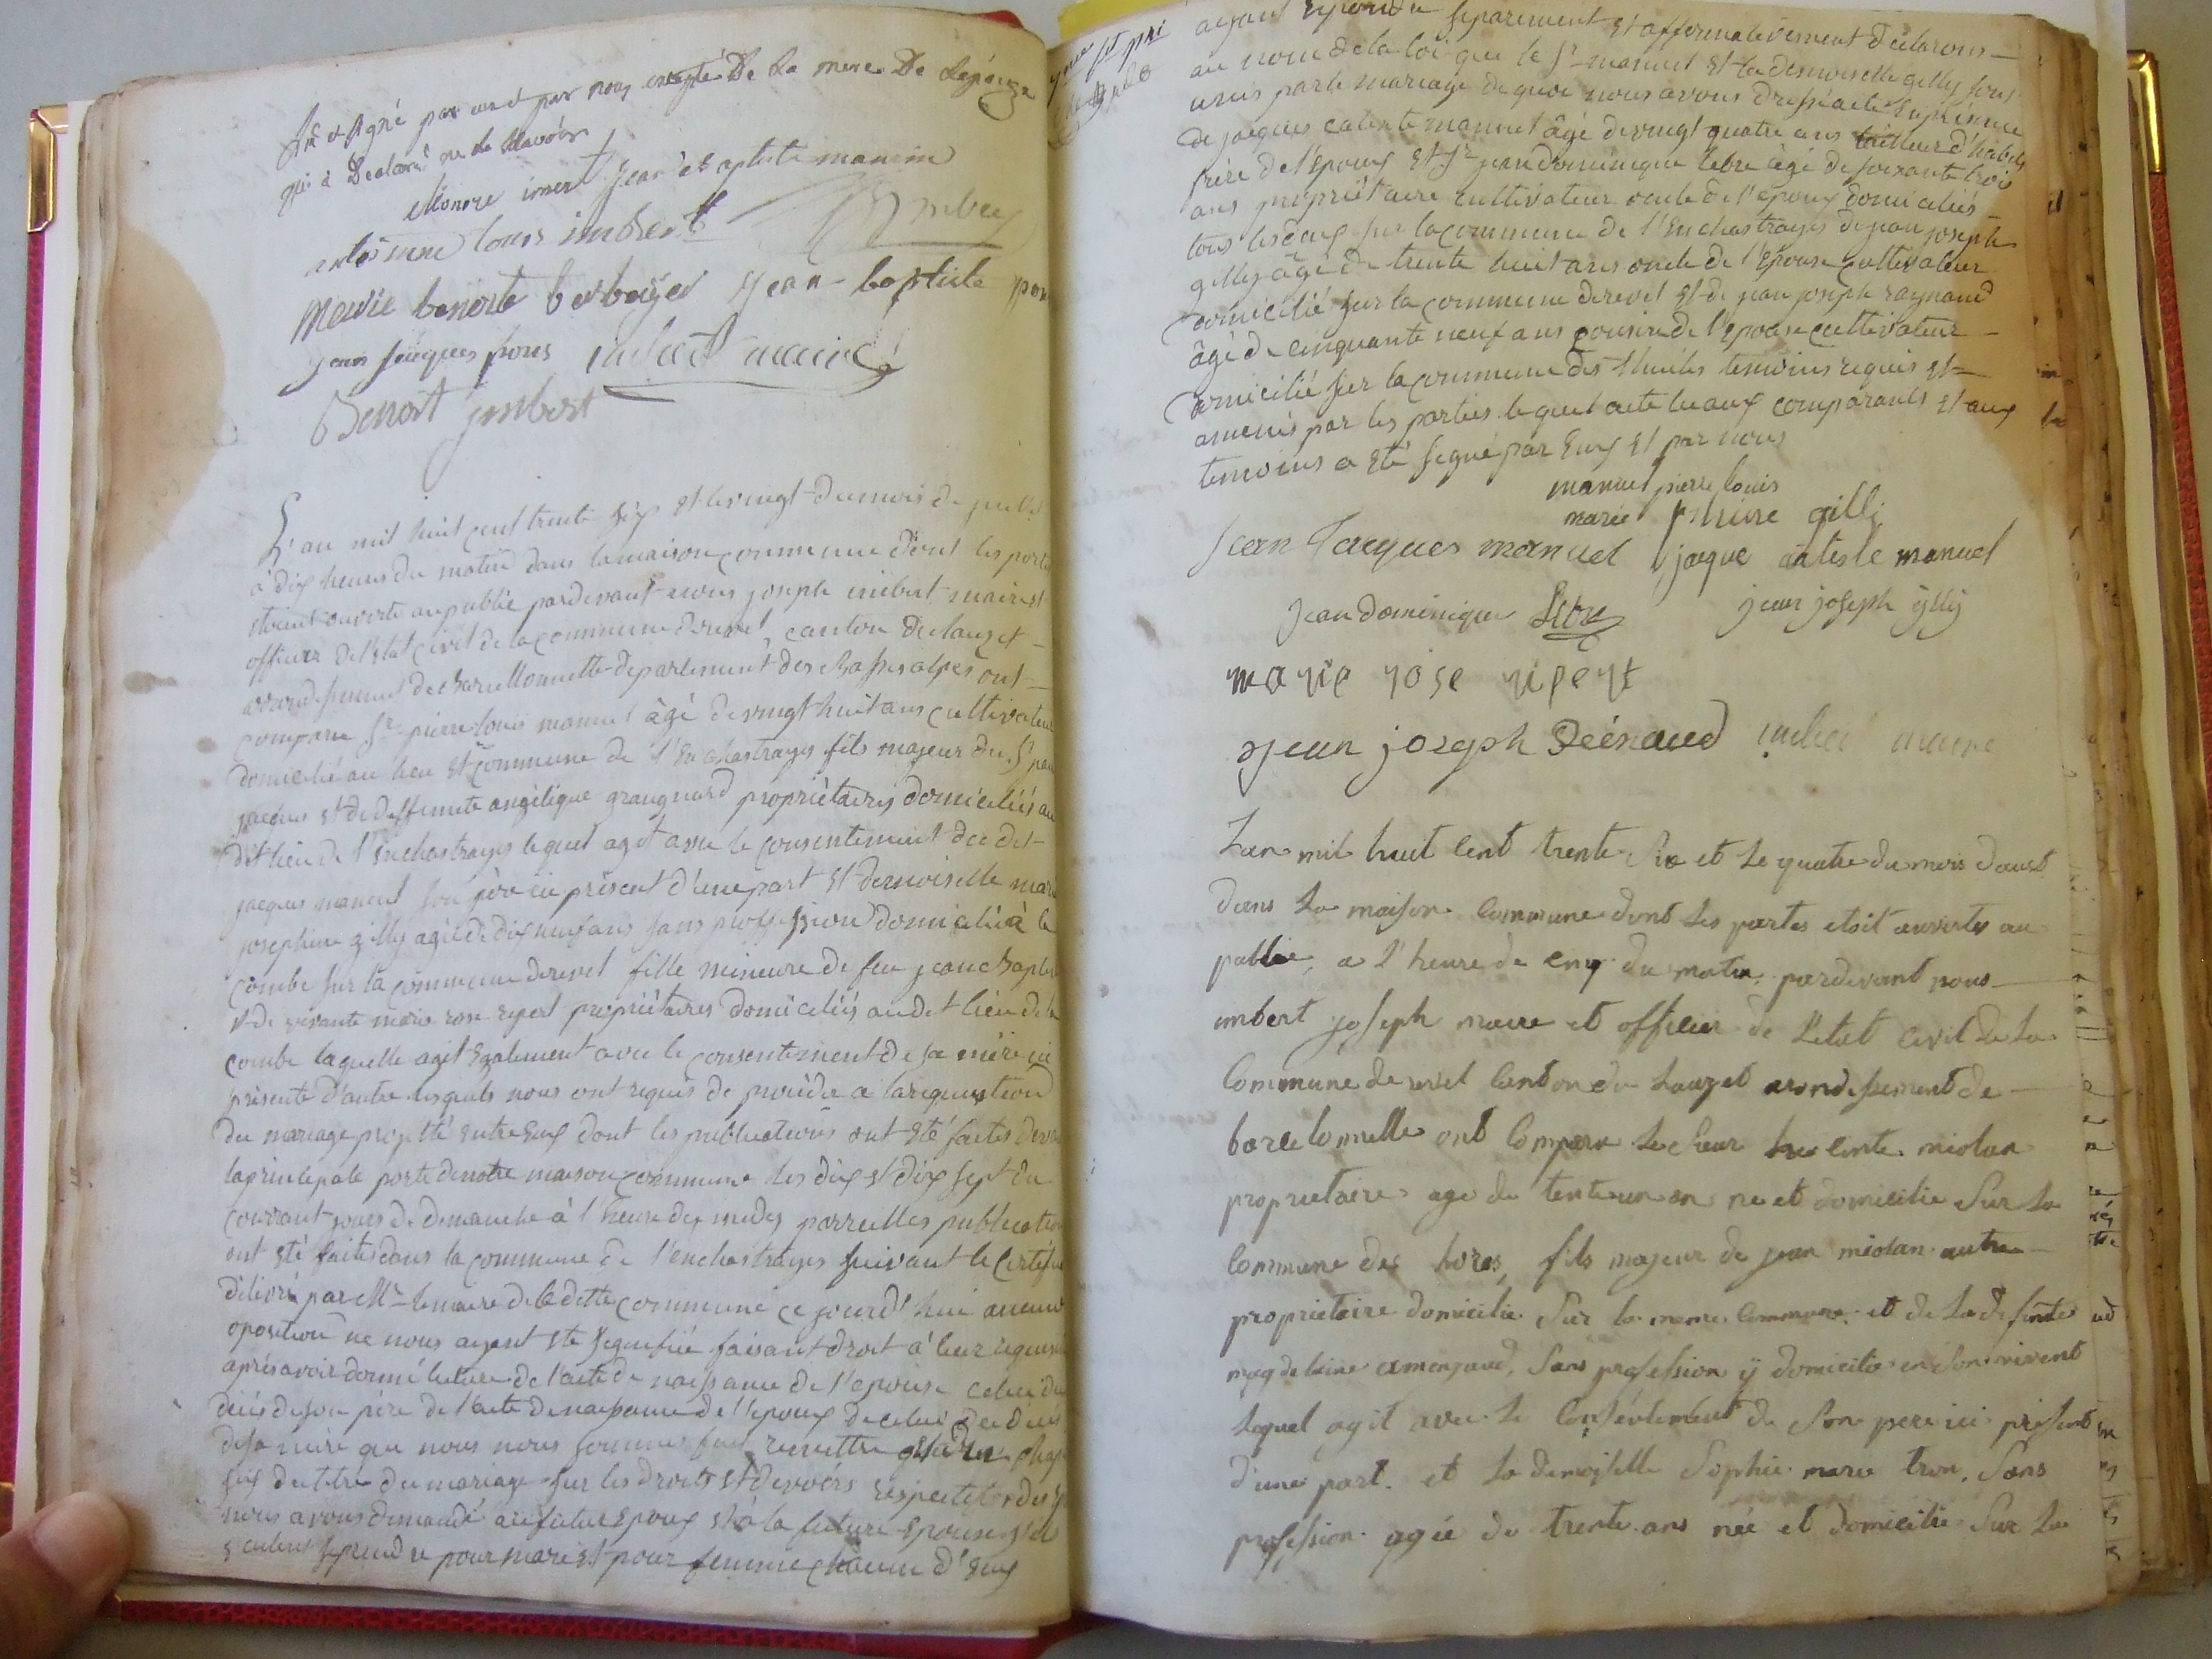 et signé par eux et par nous excepté De La mere De Lepouze
qui à Declaré ne le Savoir
honore imert Jean baptiste manuie
antoinne louis imbert
Marie benoite berboyer Jean-baptiste pons
jean jacques pons imbert maire
Benoit jmbert
L'an mil huit cent trente six et les vingt du mois de juillet
à dix heures du matin dans la maison commune dont les portes
étoient ouverte au public pardevant nous joseph imbert maire et
officier de l'état civil de la commune de revel, canton du lauzet
arrondissement de barcellonnette departement des basses alpes ont
comparu Sr pierre louis manuel âgé de vingt huit ans cultivateur
domicilié au lieu et commune de l'enchastrayes fils majeur du Sr jean
jacques et de deffunte angelique graugnard propriétaires domiciliés au
dit lieu de l'enchastrayes lequel agit avec le consentement du dit
jacques manuel son père ici présent d'une part et demoiselle marie
josephine gilly agée de dix neuf ans sans proffession domiciliée à la
combe sur la commune de revel fille mineure de feu jean baptiste
et de vivante marie rose ripert propriétaires domiciliés au dit lieu de la
combe laquelle agit également avec le consentement de sa mère ici
présente d'autre lesquels nous ont requis de procéder a la requisition
du mariage projetté entre eux dont les publications ont été faites devant
la principale porte de notre maison commune les dix et dix sept du
courrant jours de dimanche à l'heure de midy parreilles publications
ont été faites dans la commune de l'enchastrayes suivant le certificat
délivré par Mr le maire de la dette commune ce jourd'hui aucune
oposition ne nous ayant été signifiée faisant droit à leur requisition
après avoir donné lecture de l'acte de naissance de l'epouse celui du
décès de son père de l'acte de naissance de l'epoux de celui du décès
de sa mère que nous nous sommes fait remettre et du chapitre
six du titre du mariage sur les droits et devoirs respectifs des époux
nous avons demandé au futur epoux et à la future epouse s'ils
veulent se prendre pour mari et pour femme chacun d'eux
ayant repondu separement et affirmativement declarons
au nom de la loi que le Sr manuel et la demoiselle gilly sont
unis par le mariage de quoi nous avons dressé acte en présence
de jacques calixte manuel âgé de vingt quatre ans tailleur d'habits
frère de l'epoux et Sr jean dominique lebre âgé de soixante trois
ans propriétaire cultivateur oncle de l'epoux domiciliés
tous les deux sur la commune de l'enchastrayes de jean joseph
gilly âgé de trente huit ans oncle de l'epouse cultivateur
domicilié sur la commune de revel et de jean joseph raynaud
âgé de cinquante neuf ans cousin de l'epouse cultivateur
domicilié sur la commune des thuiles temoins requis et
amenés par les parties lequel acte lu aux comparants et aux
temoins a été signé par eux et par nous
manuel pierre louis
marie josephine gilli
Jean Jacques manuel jaque calixte manuel
Jean dominique Lebre jean joseph gilly
marie rose ripert
jean joseph Reénaud imbert maire
Lan mil huit cent trente six et le quatre du mois d'aust
dans la maison commune dont les portes etoit ouvertes au
public, a l'heure de cinq du matin, pardevant nous
imbert joseph maire et officier de l'etat civil de la
Commune de revel canton du Lauzet arondissement de
barcelonnelle ont comparu le sieur miolan
proprietaire age de trente un an ne et domicilie sur la
Commune des hores, fils majeur de jean miolan autre
proprietaire domicilie sur la meme commune et de la defunte
magdelaine amenjaud, sans profession y domicilie en son vivent
lequel agit avec le consentement de son pere ici present
d'une part. et la demoiselle Sophie marie tron, sans
profession agée de trente ans née et domicilie sur la